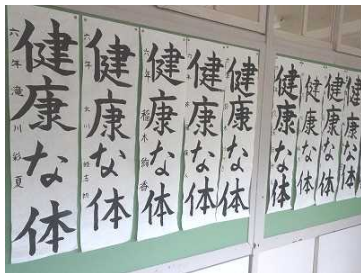 健康な体
六年 滝川 彩夏
健康な体
六年
健康な体
六年
健康な体
健康な体
健康な体
健康な体
健康な体
健康な体